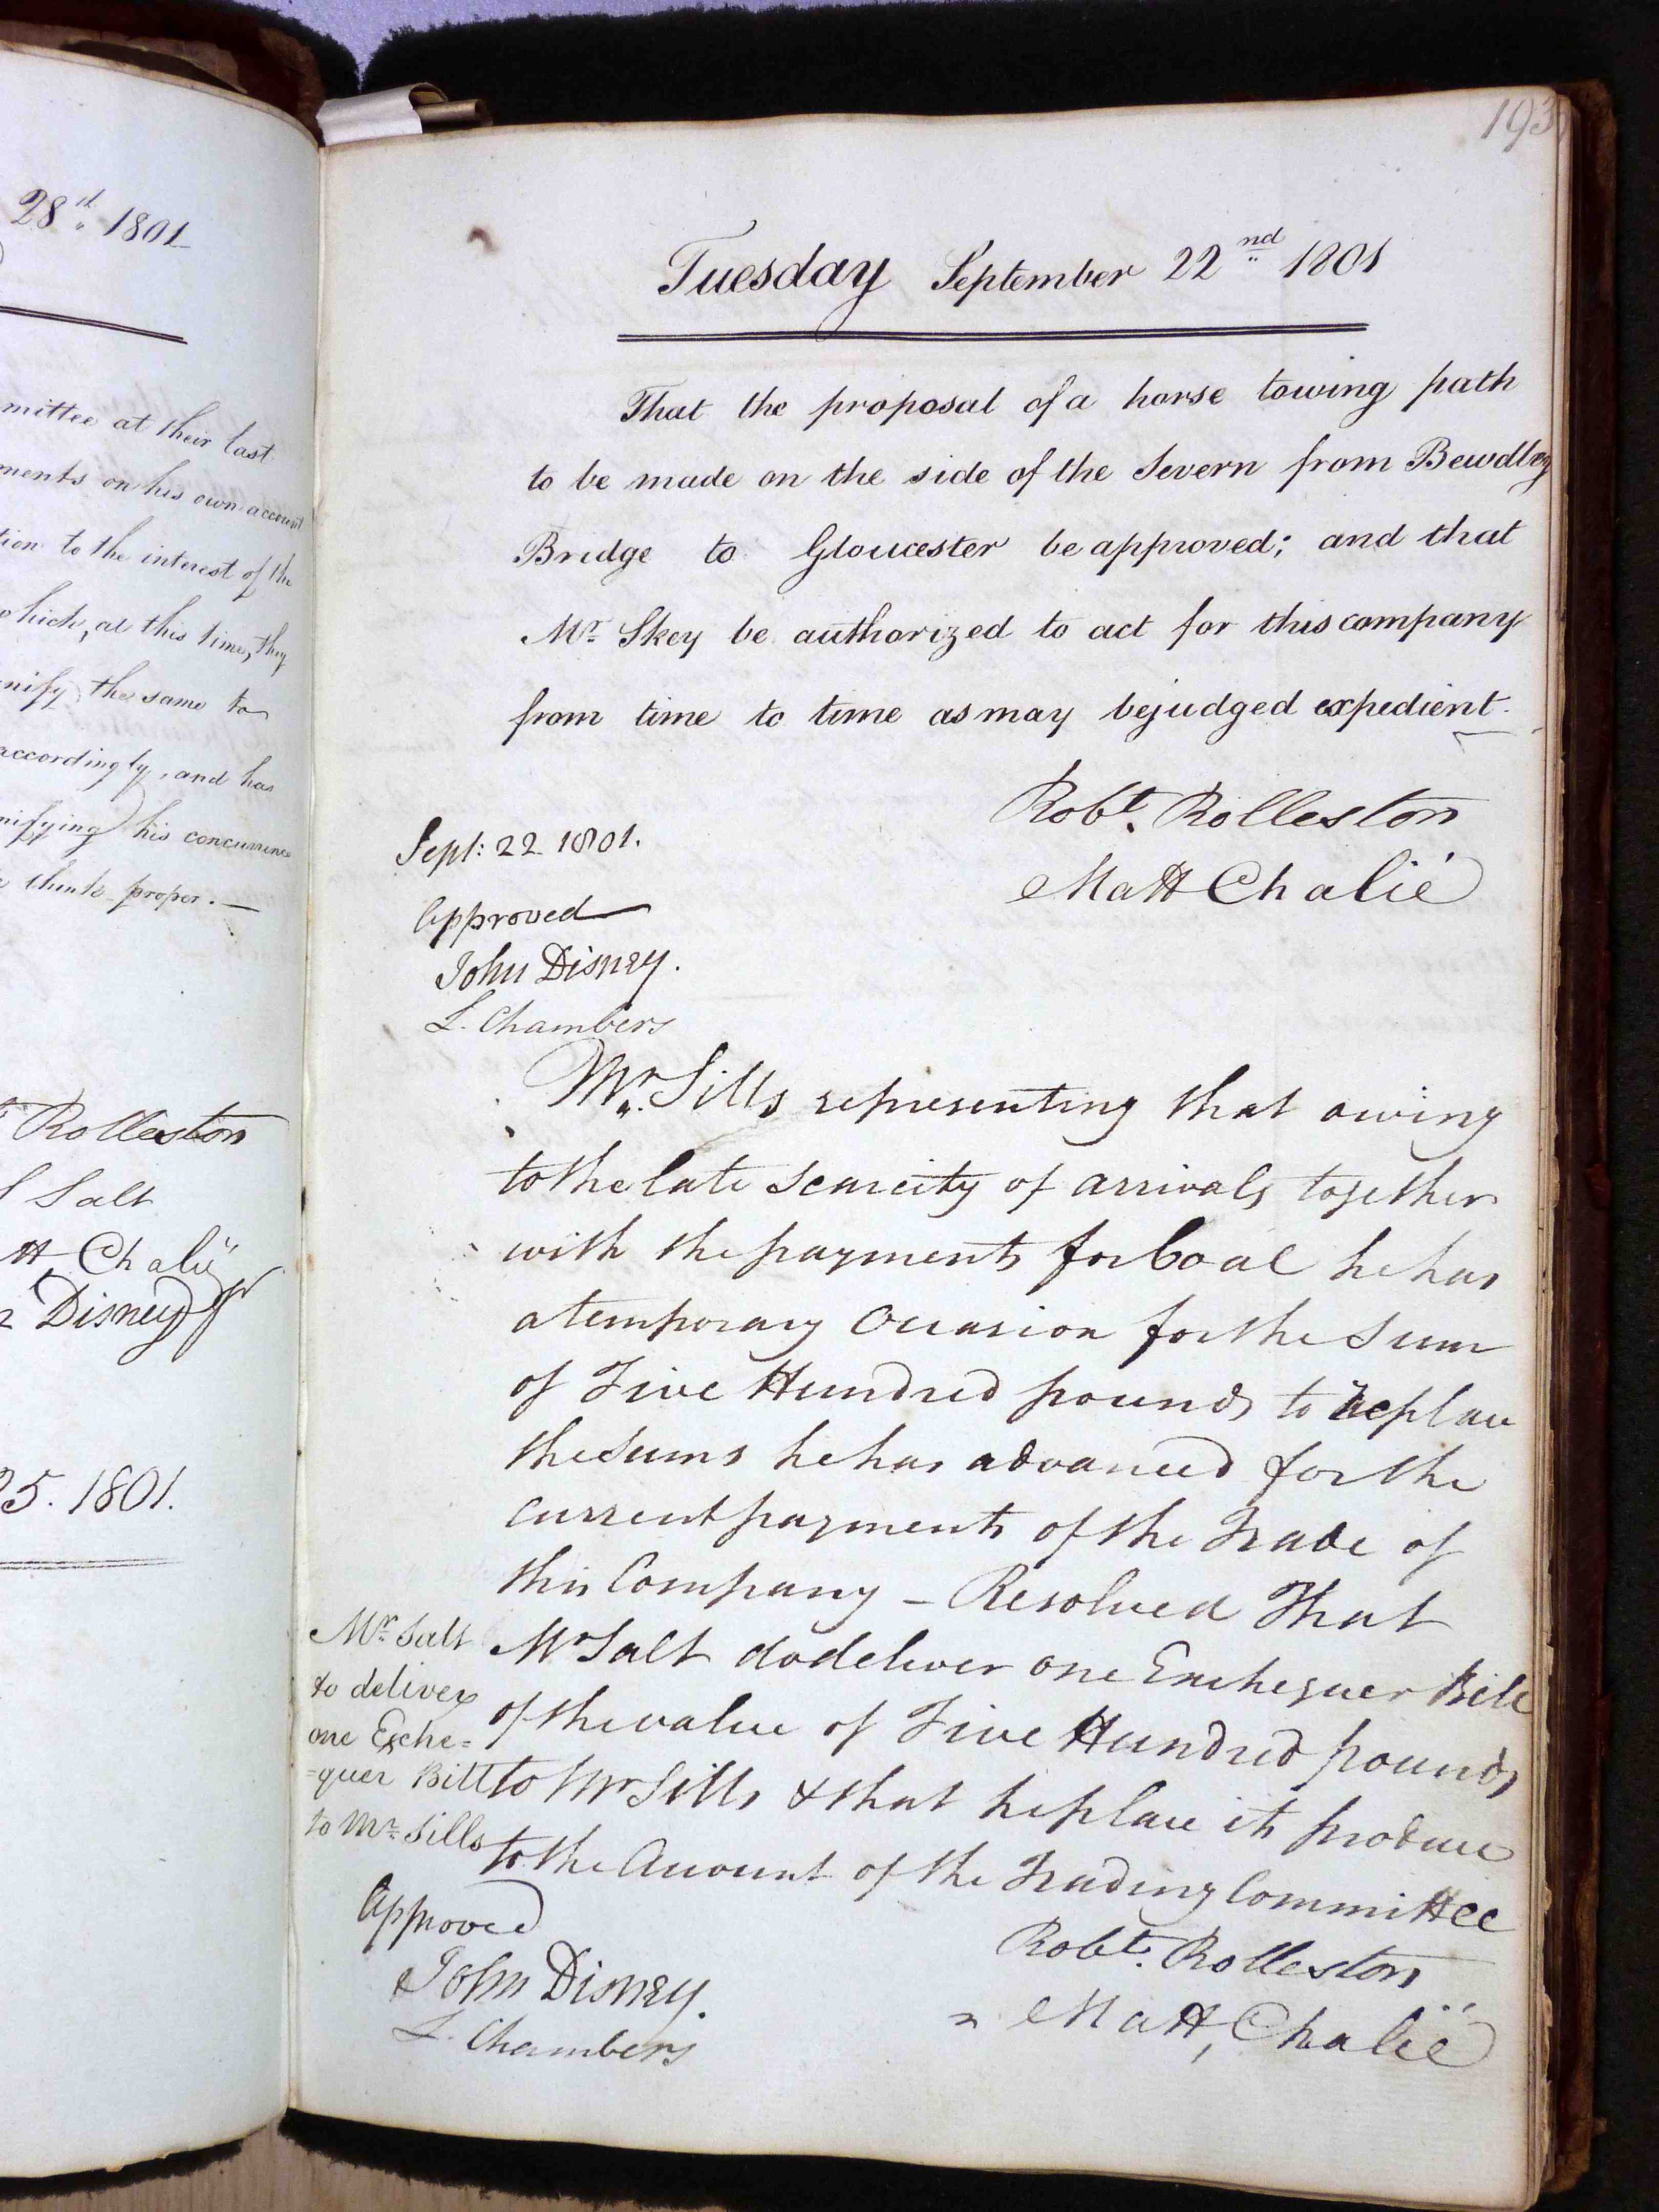 28th 1801
mittee at their last
ments on his own account
tion to the interest of the
which, at this time, they
nify the same to
accordingly, and has
nifying his concurrence
thinks proper. —
Rolleston
Salt
tt, Chalié
Disney Jr
25. 1801.
193
Tuesday September 22nd 1801
That the proposal of a horse towing path
to be made on the side of the Severn from Bewdley
Bridge to Gloucester be approved; and that
Mr. Skey be authorized to act for this company
from time to time as may be judged expedient.
Robt. Rolleston
Matt Chalié
Sept: 22 1801.
Approved
John Disney.
L. Chambers
Mr. Sills representing that owing
to the late Scarcity of arrivals together
with the payments for Coal he has
a temporary Occasion for the Sum
of Five Hundred pounds to replace
the Sums he has advanced for the
current payments of the Trade of
this Company – Resolved That
Mr Salt do deliver one Exchequer Bill
of the value of Five Hundred pounds
to Mr Sills & that he place its produce
to the Account of the Trading Committee
Mr. Salt
to deliver
one Exche=
=quer Bill
to Mr. Sills
Approved
John Disney.
L. Chambers
Robt. Rolleston
Matt, Chalié